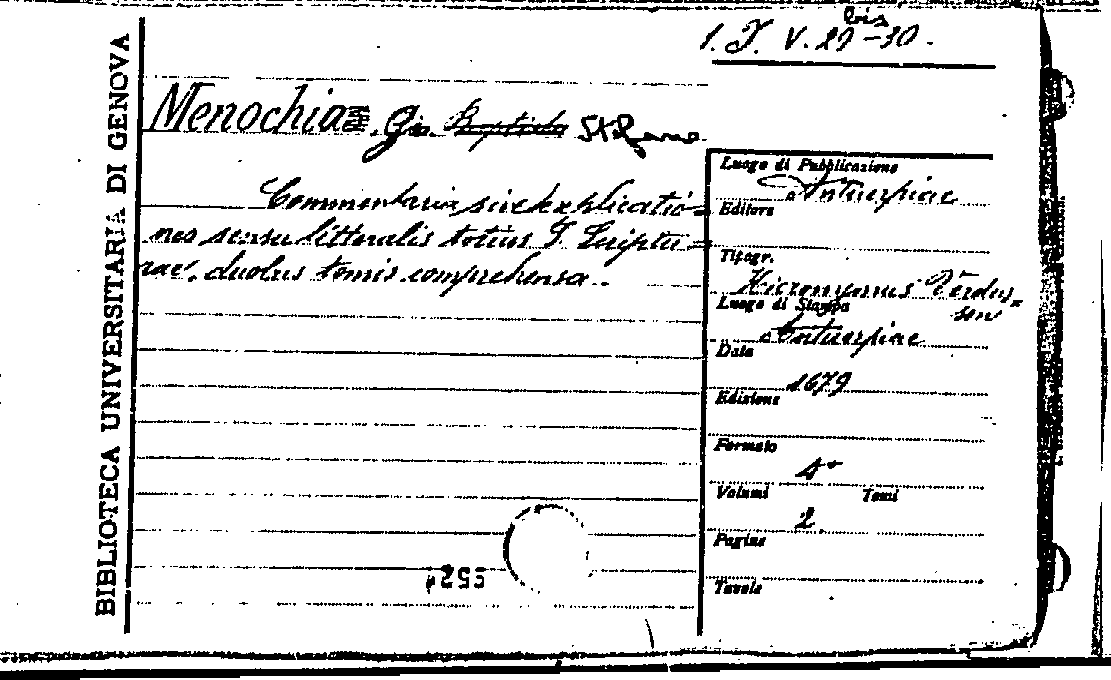 BIBLIOTECA UNIVERSITARIA DI GENOVA
1. T. V. 29 bis -30.
Menochia Gio. Baptista Stefano
Commentaria sive explicatio=
nes sensu litteralis totius S. Scriptu=
rae, duobus tomis comprehensa.
Luogo di Pubblicazione
Antuerpiae
Editore
Tipogr.
Hieronymus Verdus=
sen
Luogo di Stampa
Antuerpiae
Data
1679
Edizione
Formato
4°
Volumi Tomi
2
Pagine
Tavole